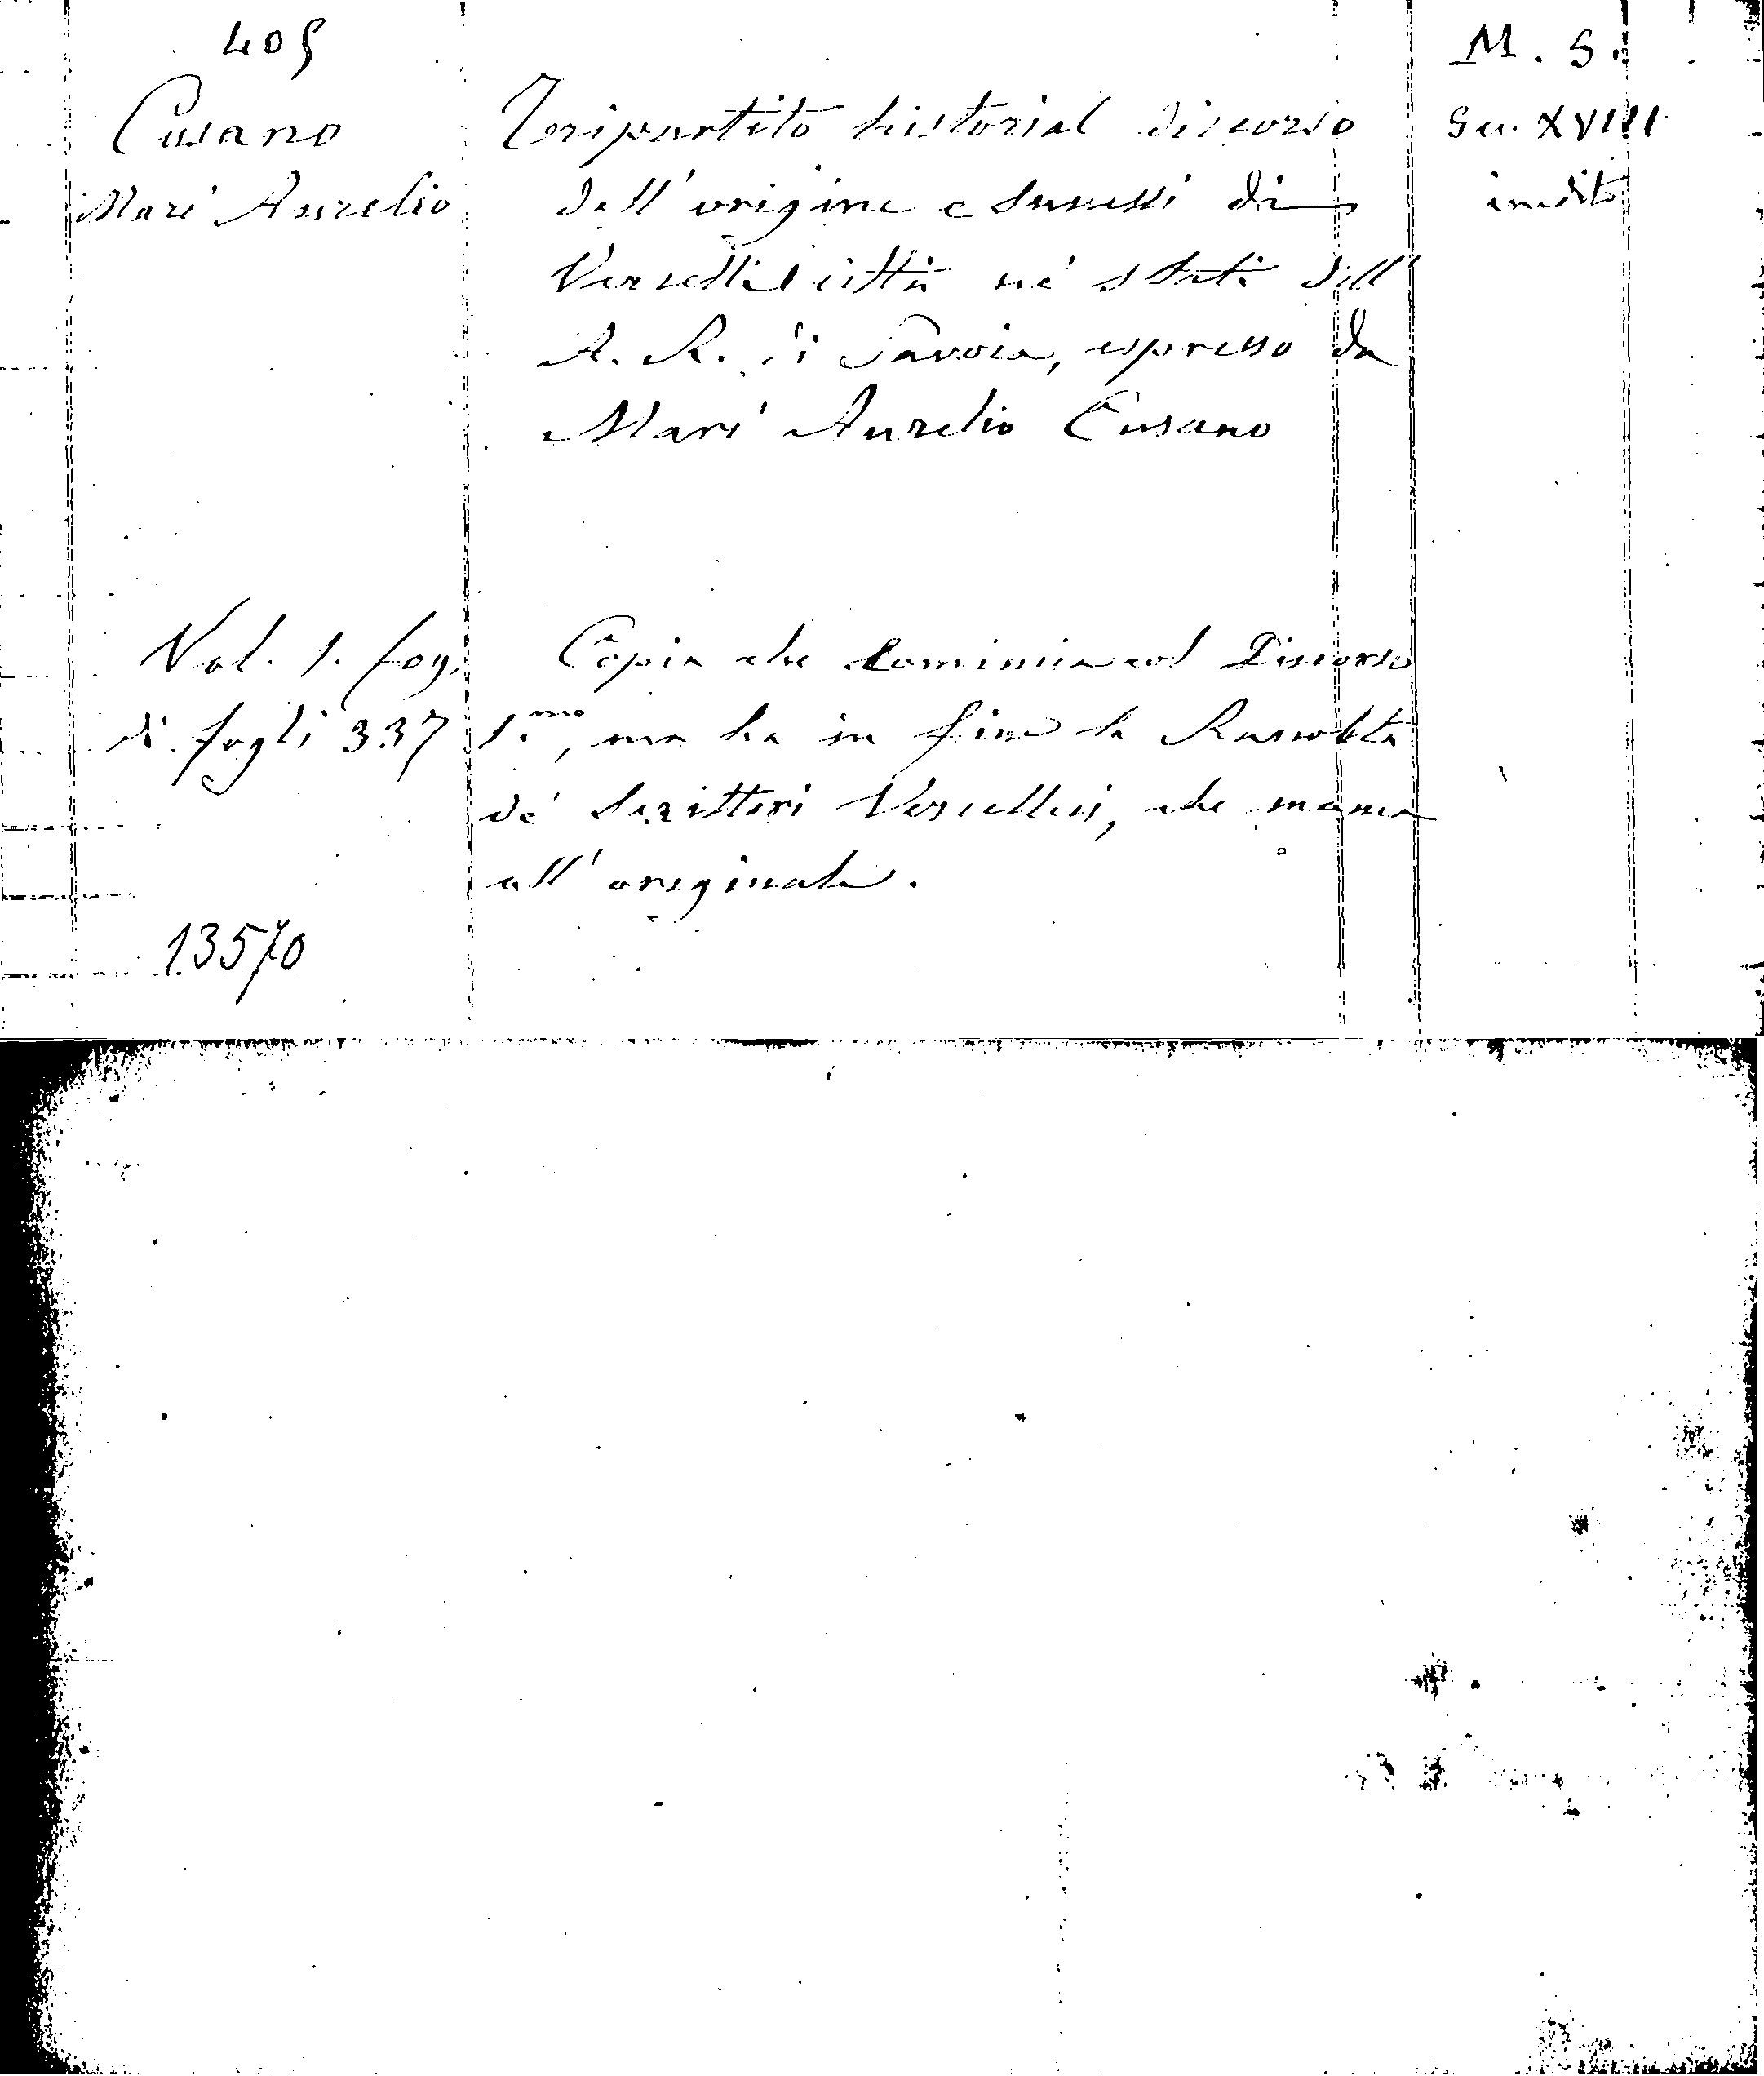 405
M. S.
Cusano
Tripartito historial discorso
Sec. XVIII
Marc' Aurelio
dell'origine e successi di
inedito
Vercelli città ne' stati dell'
A. R. di Savoia, espresso da
Marc' Aurelio Cusano
Vol. 1. fog.
Copia che comincia col Discorso
di fogli 337
1.mo, ma ha in fine la Raccolta
de' Scrittori Vercellesi, che manca
all'originale.
13570